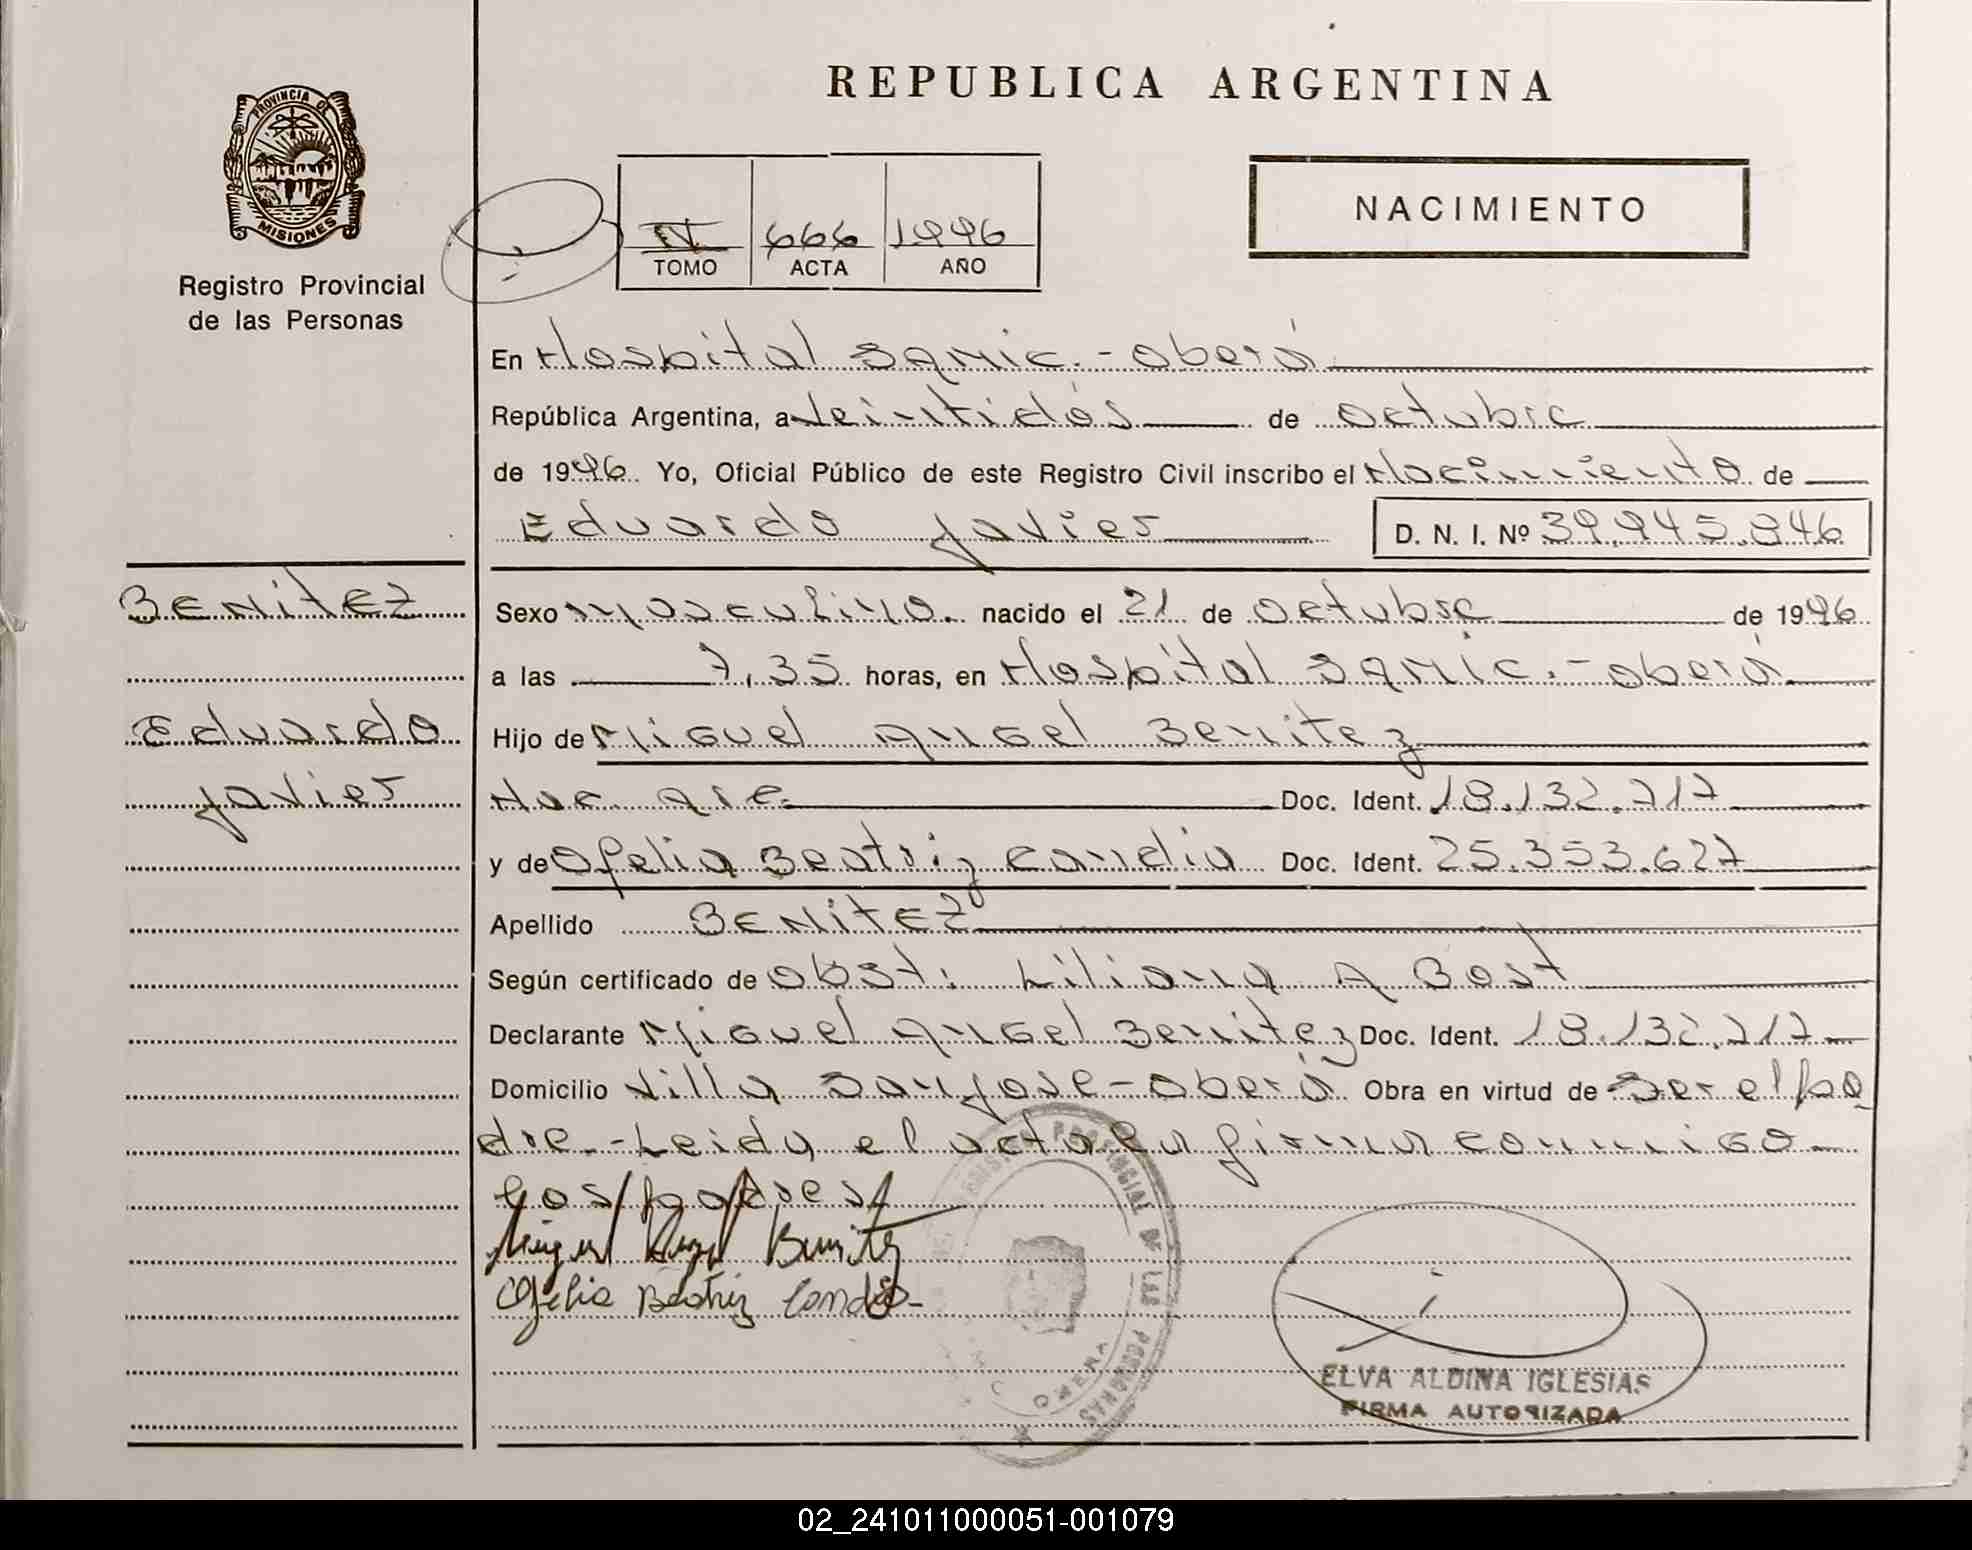 REPUBLICA ARGENTINA
PROVINCIA DE
MISIONES
Registro Provincial
de las Personas
NACIMIENTO
IV 666 1996
TOMO ACTA AÑO
En Hospital SAMIC.-Oberá
República Argentina, a Veintidós de Octubre
de 1996. Yo, Oficial Público de este Registro Civil inscribo el Nacimiento de
Eduardo Javier D. N. I. Nº 39.945.846
BENITEZ
Sexo Masculino. nacido el 21 de Octubre de 1996
a las 7,35 horas, en Hospital SAMIC.-Oberá
Eduardo
Hijo de Miguel Angel Benitez
Javier
Nac Arg. Doc. Ident. 18.132.717
y de Ofelia Beatriz Candia Doc. Ident. 25.353.627
Apellido BENITEZ
Según certificado de Obst: Liliana A Bost
Declarante Miguel Angel Benitez Doc. Ident. 18.132.717
Domicilio Villa San José-Oberá Obra en virtud de Ser el pa
dre.-Leida el acta la firman conmigo
los padres
Miguel Angel Benitez
Ofelia Beatriz Candia
REGISTRO PROVINCIAL DE LAS PERSONAS
ELVA ALDINA IGLESIAS
FIRMA AUTORIZADA
02_241011000051-001079